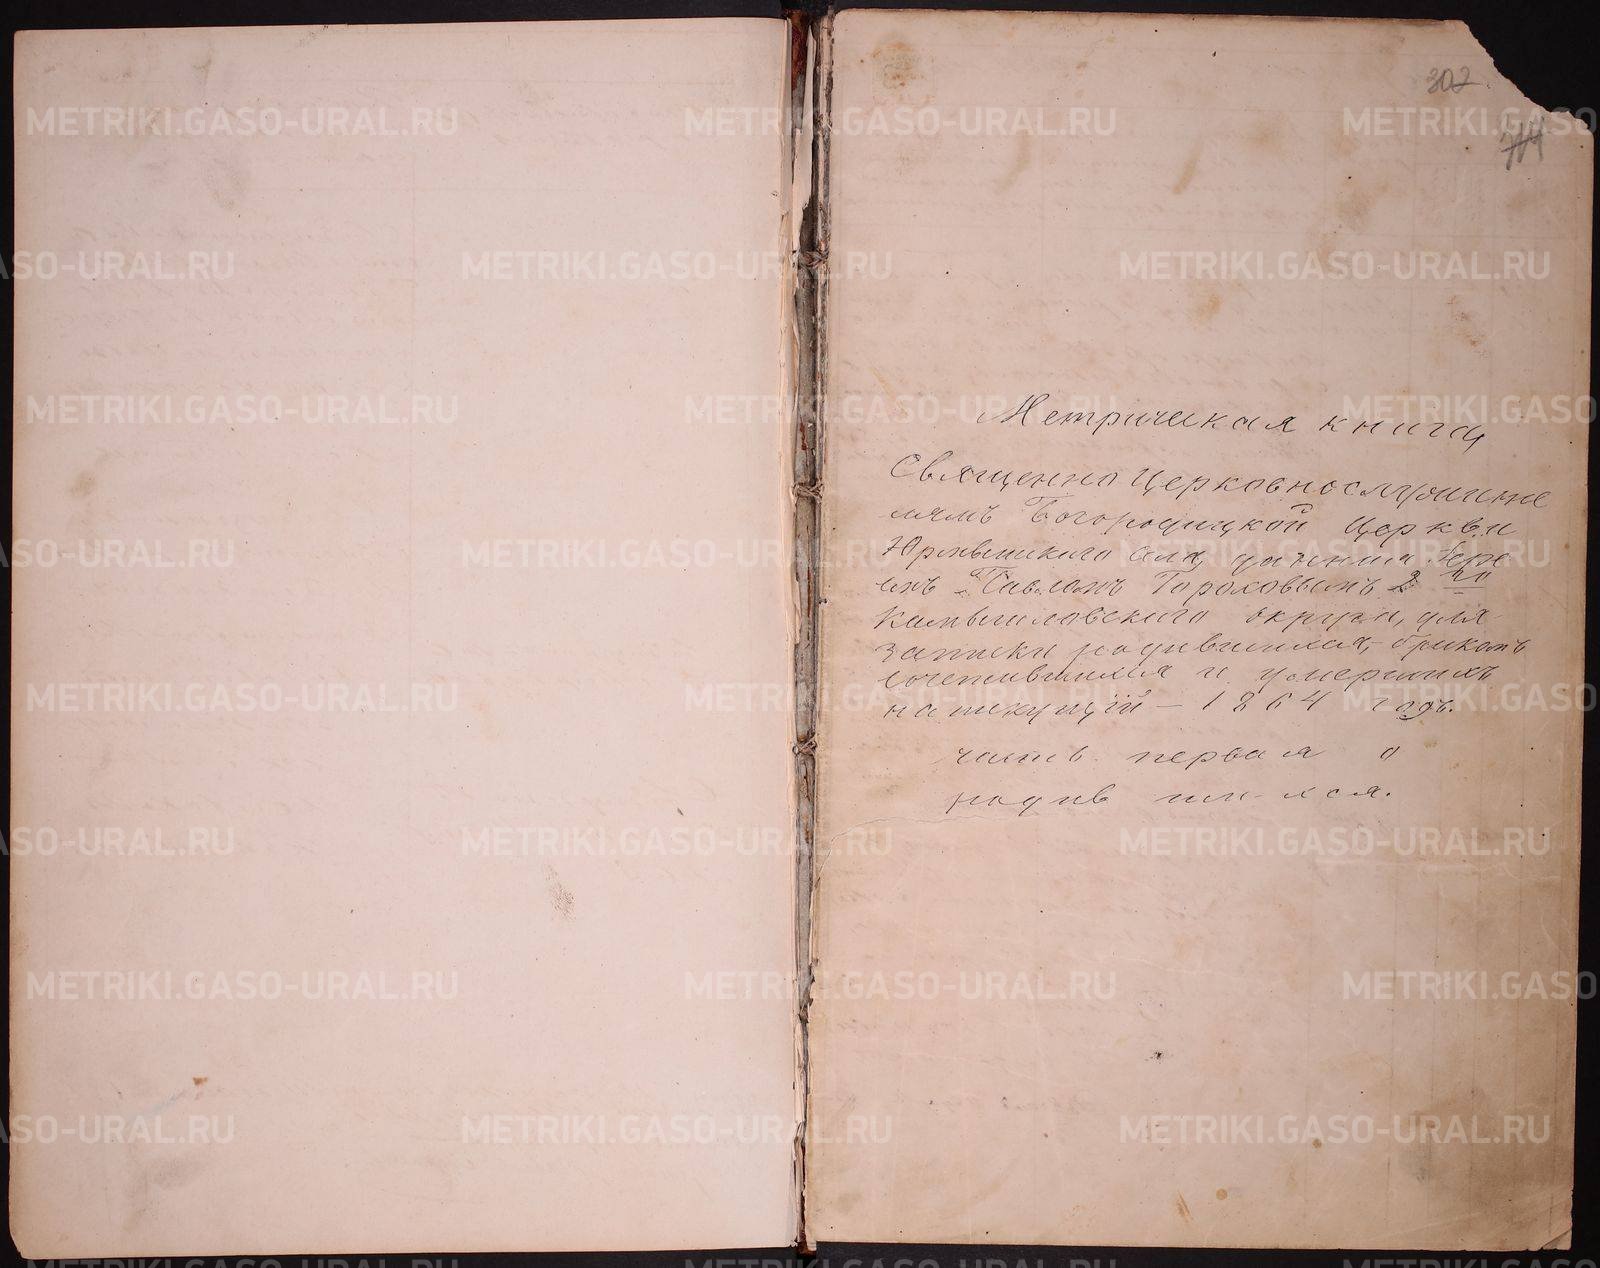 302
Метрическая книга,
Священно Церковнослужите
лямъ Богородицкой Церкви
Юрмытскаго села, данная
Павломъ Гороховымъ 2 го
Камышловскаго округа, для
записки родившихся, бракомъ
сочетавшихся и умершихъ
на текущій — 1864 годъ.
часть первая о
родившихся.